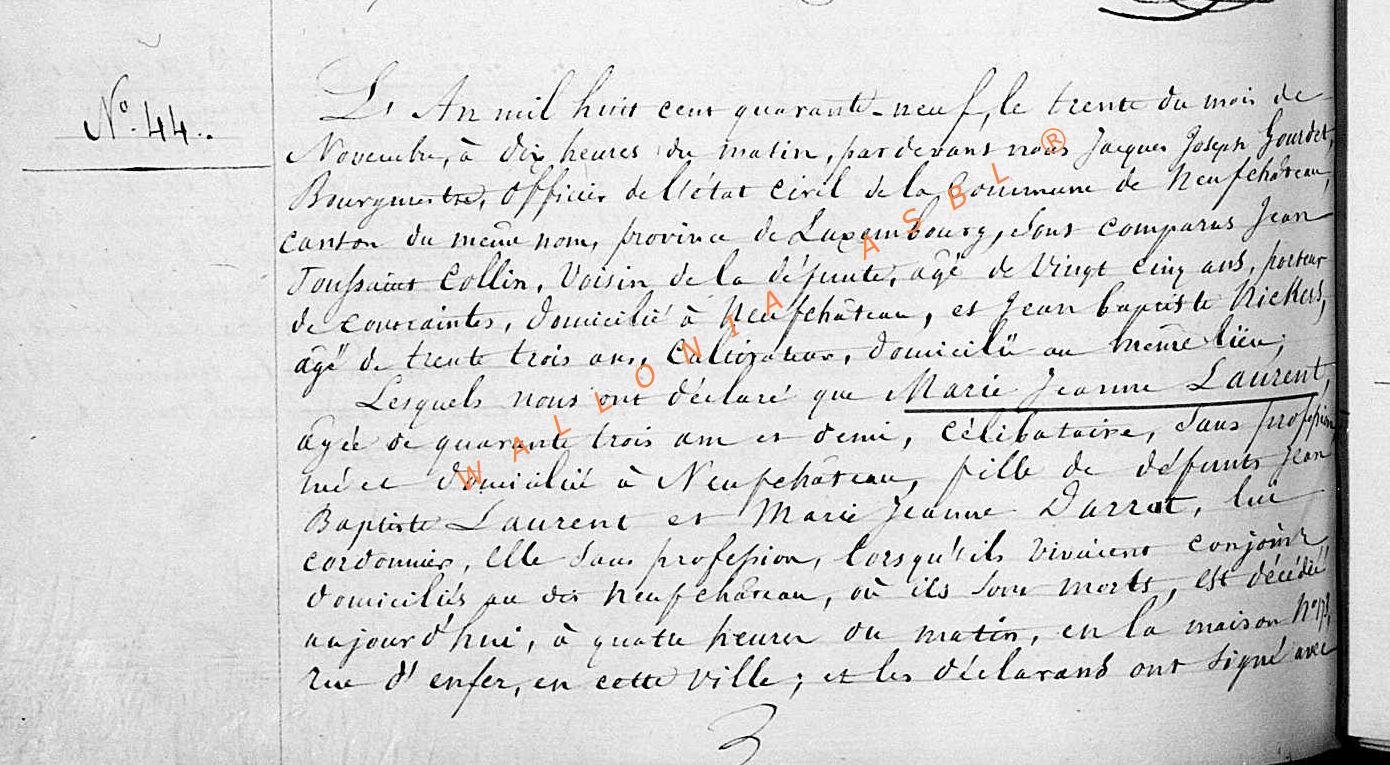 N.° 44..
L'An mil huit cent quarante-neuf, le trente du mois de
Novembre, à dix heures du matin, pardevant nous Jacques Joseph Gourdet,
Bourgmestre, officier de l'état civil de la Commune de Neufchâteau,
canton du même nom, province de Luxembourg, sont comparus Jean
Toussaint Collin, voisin de la défunte, âgé de vingt cinq ans, porteur
de contraintes, domicilié à Neufchâteau, et Jean baptiste Nickers,
âgé de trente trois ans, domicilié au même lieu,
Lesquels nous ont déclaré que Marie Jeanne Laurent,
âgée de quarante trois ans et demi, célibataire, sans profession
né et domicilié à Neufchâteau, fille de défunts Jean
Baptiste Laurent et Marie Jeanne Darrat, lui
cordonnier, elle sans profession, lorsqu'ils vivaient conjoints
domiciliés au dit Neufchâteau, où ils sont morts, est décédée
aujourd'hui, à quatre heures du matin, en la maison
rue d'enfer, en cette ville; et les déclarans ont signé avec
WALLONIA ASBL ®